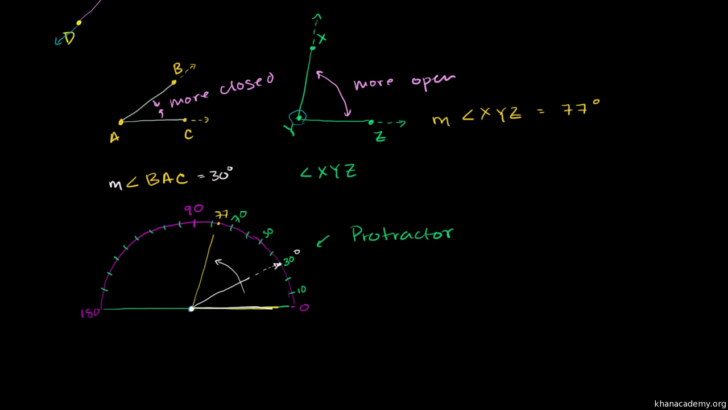 D
X
B
more closed
more open
A
C
Y
Z
m ∠XYZ = 77°
m∠BAC = 30°
∠XYZ
90
77
70
50
Protractor
30°
10
180
0
khanacademy.org